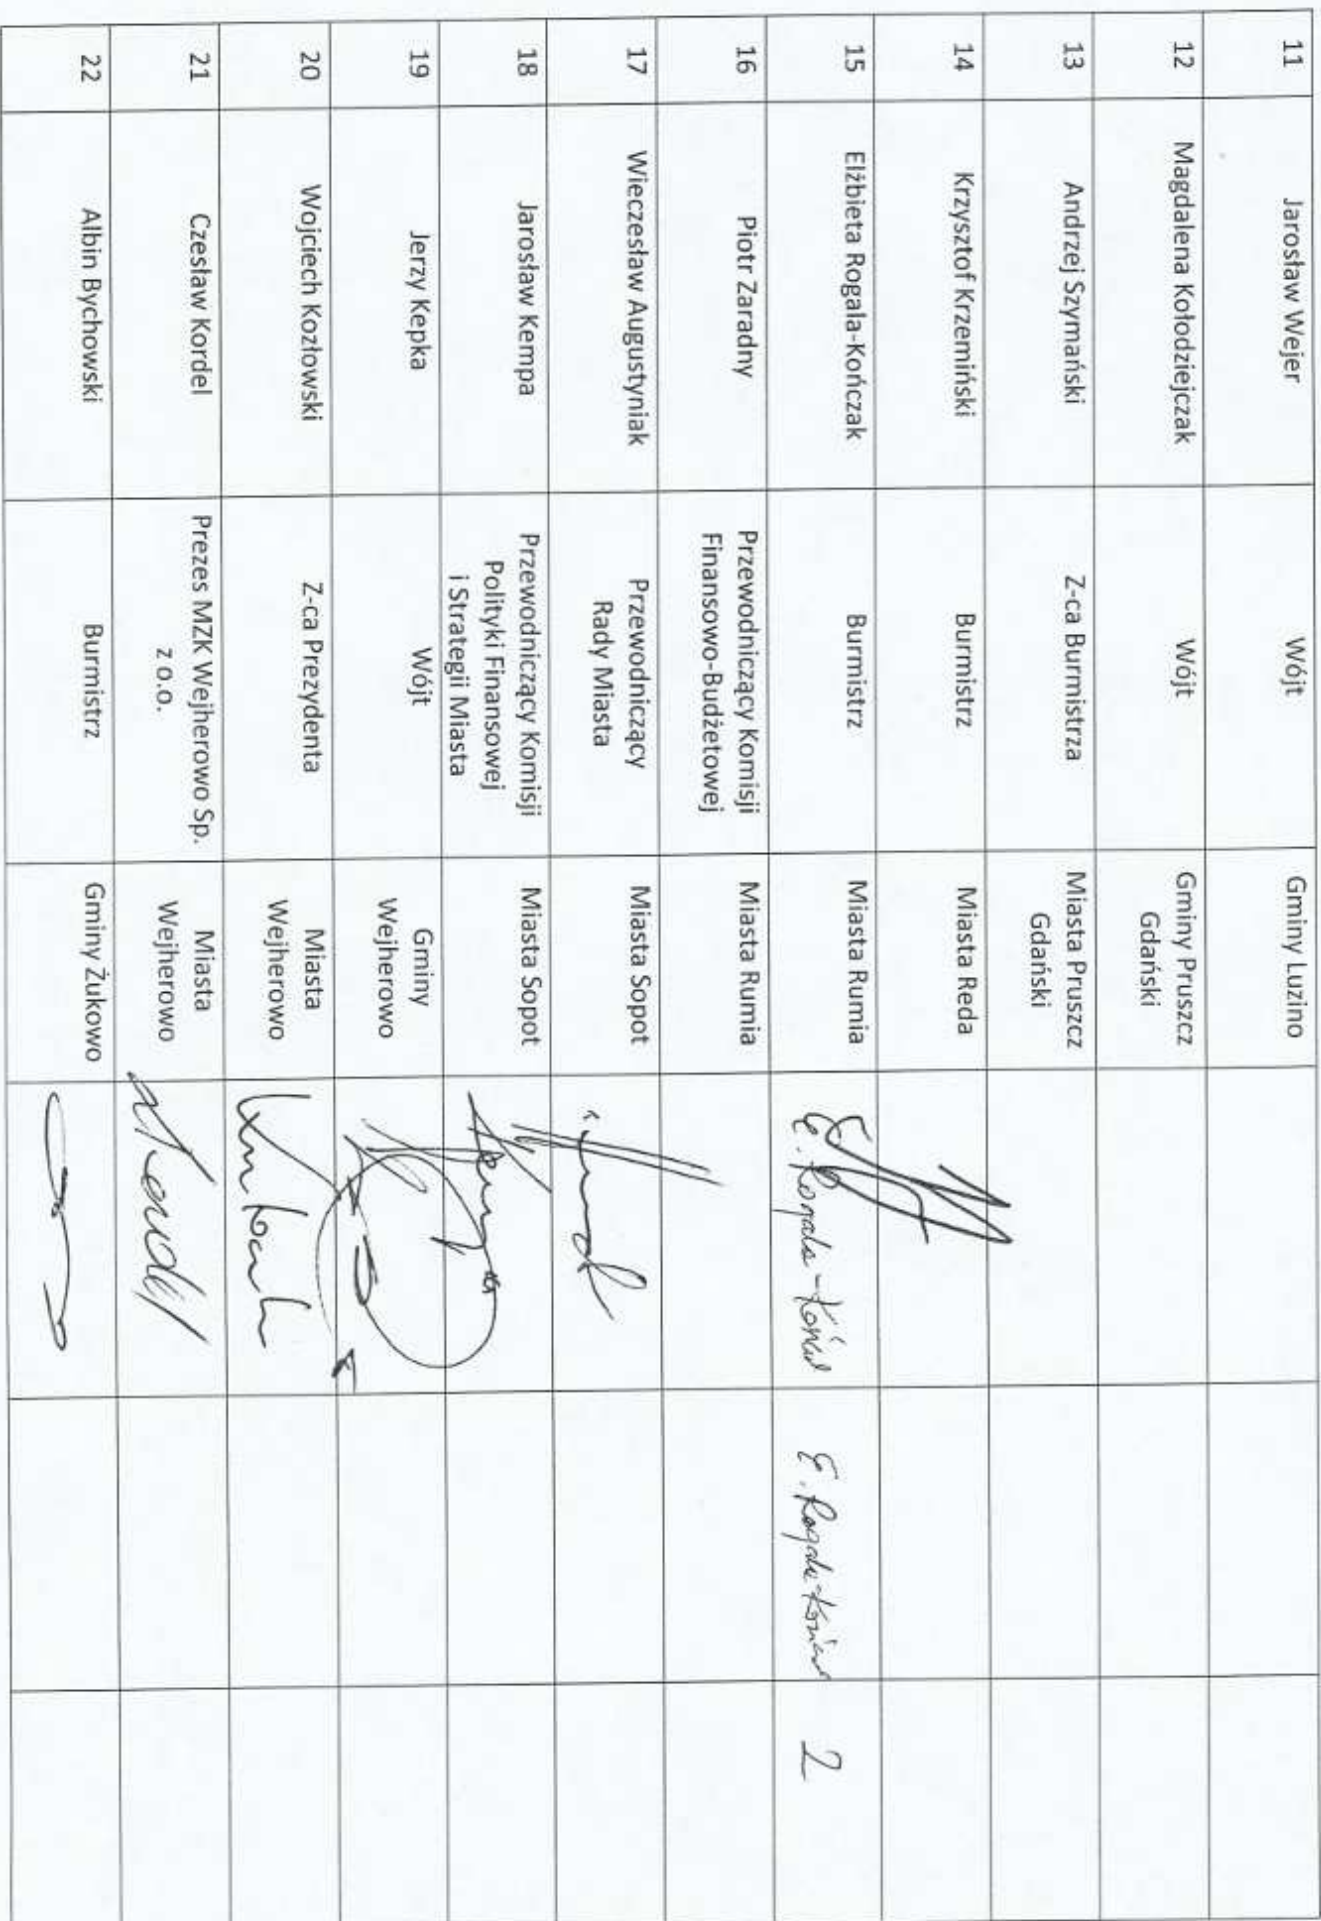 11
Jarosław Wejer
Wójt
Gminy Luzino
12
Magdalena Kołodziejczak
Wójt
Gminy Pruszcz
Gdański
13
Andrzej Szymański
Z-ca Burmistrza
Miasta Pruszcz
Gdański
14
Krzysztof Krzemiński
Burmistrz
Miasta Reda
15
Elżbieta Rogala-Kończak
Burmistrz
Miasta Rumia
E. Rogala-
E. Rogala-
2
16
Piotr Zaradny
Przewodniczący Komisji
Finansowo-Budżetowej
Miasta Rumia
17
Wieczesław Augustyniak
Przewodniczący
Rady Miasta
Miasta Sopot
18
Jarosław Kempa
Przewodniczący Komisji
Polityki Finansowej
i Strategii Miasta
Miasta Sopot
19
Jerzy Kepka
Wójt
Gminy
Wejherowo
20
Wojciech Kozłowski
Z-ca Prezydenta
Miasta
Wejherowo
21
Czesław Kordel
Prezes MZK Wejherowo Sp.
z o.o.
Miasta
Wejherowo
22
Albin Bychowski
Burmistrz
Gminy Żukowo